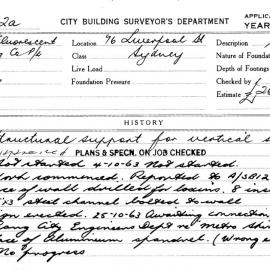 2a CITY BUILDING SURVEYOR'S DEPARTMENT APPLIC
YEAR
Fluorescent Location 96 Liverpool St Description
Co P/L Class Sydney Nature of Foundation
Live Load Depth of Footings
Foundation Pressure Checked by
Estimate £
HISTORY
Structural support for vertical s
PLANS & SPECN. ON JOB CHECKED
Not started 4-10-63 Not started.
Work commenced. Reported to A/SB12
ce of wall drilled for 8 ins
x3 steel channel bolted to wall
gn erected. 25-10-63 Awaiting connection
Rang City Engineers Dept re metro
ce of Aluminium spandrel. (Wrong a
No progress